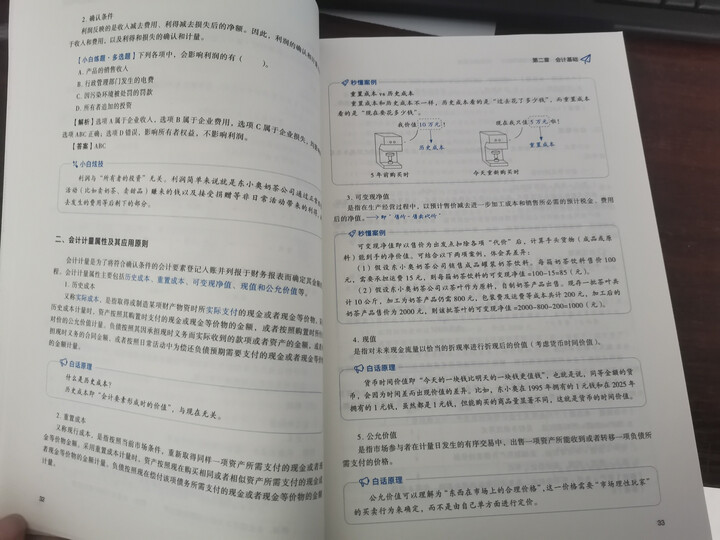 2. 确认条件
利润反映的是收入减去费用、利得减去损失后的净额。因此，利润的确认
于收入和费用，以及利得和损失的确认和计量。
【小白练题·多选题】下列各项中，会影响利润的有（　　）。
A. 产品的销售收入
B. 行政管理部门发生的电费
C. 因污染环境被处罚的罚款
D. 所有者追加的投资
【解析】选项 A 属于企业收入，选项 B 属于企业费用，选项 C 属于企业损失，
选项 ABC 正确；选项 D 错误，影响所有者权益，不影响利润。
【答案】ABC
小白续技
利润与“所有者的投资”无关。利润简单来说就是东小奥奶茶公司通过
活动（比如卖奶茶、卖甜品）赚来的钱以及接受捐赠等非日常活动带来的利得
去发生的费用等后剩下的部分。
二、会计计量属性及其应用原则
会计计量是为了将符合确认条件的会计要素登记入账并列报于财务报表而确定其金额
程。会计计量属性主要包括历史成本、重置成本、可变现净值、现值和公允价值等。
1. 历史成本
又称实际成本，是指取得或制造某项财产物资时所实际支付的现金或者现金等价物。
历史成本计量时，资产按照其购置时支付的现金或现金等价物的金额，或者按照购置时所
对价的公允价值计量。负债按照其因承担现时义务而实际收到的款项或者资产的金额，或
担现时义务的合同金额，或者按照日常活动中为偿还负债预期需要支付的现金或者现金等
的金额计量。
白话原理
什么是历史成本？
历史成本即“会计要素形成时的价值”，与现在无关。
2. 重置成本
又称现行成本，是指按照当前市场条件，重新取得同样一项资产所需支付的现金或者
金等价物金额。采用重置成本计量时，资产按照现在购买相同或者相似资产所需支付的现金或
者现金等价物的金额计量。负债按照现在偿付该项债务所需支付的现金或者现金等价物的金
计量。
32
第二章　会计基础
秒懂案例
重置成本 vs 历史成本
重置成本和历史成本不一样，历史成本看的是“过去花了多少钱”，而重置成本
看的是“现在要花多少钱”。
我价值10万元！
历史成本
5年前购买时
现在我只值5万元啦！
重置成本
今天重新购买时
3. 可变现净值
是指在生产经营过程中，以预计售价减去进一步加工成本和销售所必需的预计税金、费用
后的净值。→即“售价-售出代价”
秒懂案例
可变现净值即以售价为出发点扣除各项“代价”后，计算手头货物（成品或原
料）能到手的净价值。可结合以下两项案例，体会其差异：
（1）假设东小奥奶茶公司销售成品罐装奶茶饮料，每箱奶茶饮料售价100
元，需要承担运费15元，则每箱奶茶饮料的可变现净值=100-15=85（元）。
（2）假设东小奥奶茶公司以茶叶作为原料，自制奶茶产品出售。现存一批茶叶共
计10公斤，加工为奶茶产品仍需800元，包装费及运费等成本共计200元，加工后的
奶茶产品售价为2000元，则该批茶叶的可变现净值=2000-800-200=1000（元）。
4. 现值
是指对未来现金流量以恰当的折现率进行折现后的价值（考虑货币时间价值）。
白话原理
货币时间价值即“今天的一块钱比明天的一块钱更值钱”，也就是说，同等金额的货
币，会因为时间差而出现价值的差异。比如，东小奥在1995年拥有的1元钱和在2025年
拥有的1元钱，虽然都是1元钱，但能购买的商品量显著不同，这就是货币的时间价值。
5. 公允价值
是指市场参与者在计量日发生的有序交易中，出售一项资产所能收到或者转移一项负债所
需支付的价格。
白话原理
公允价值可以理解为“东西在市场上的合理价格”，这一价格需要“市场理性玩家”
的买卖行为来确定，而不是由自己单方面进行定价。
33